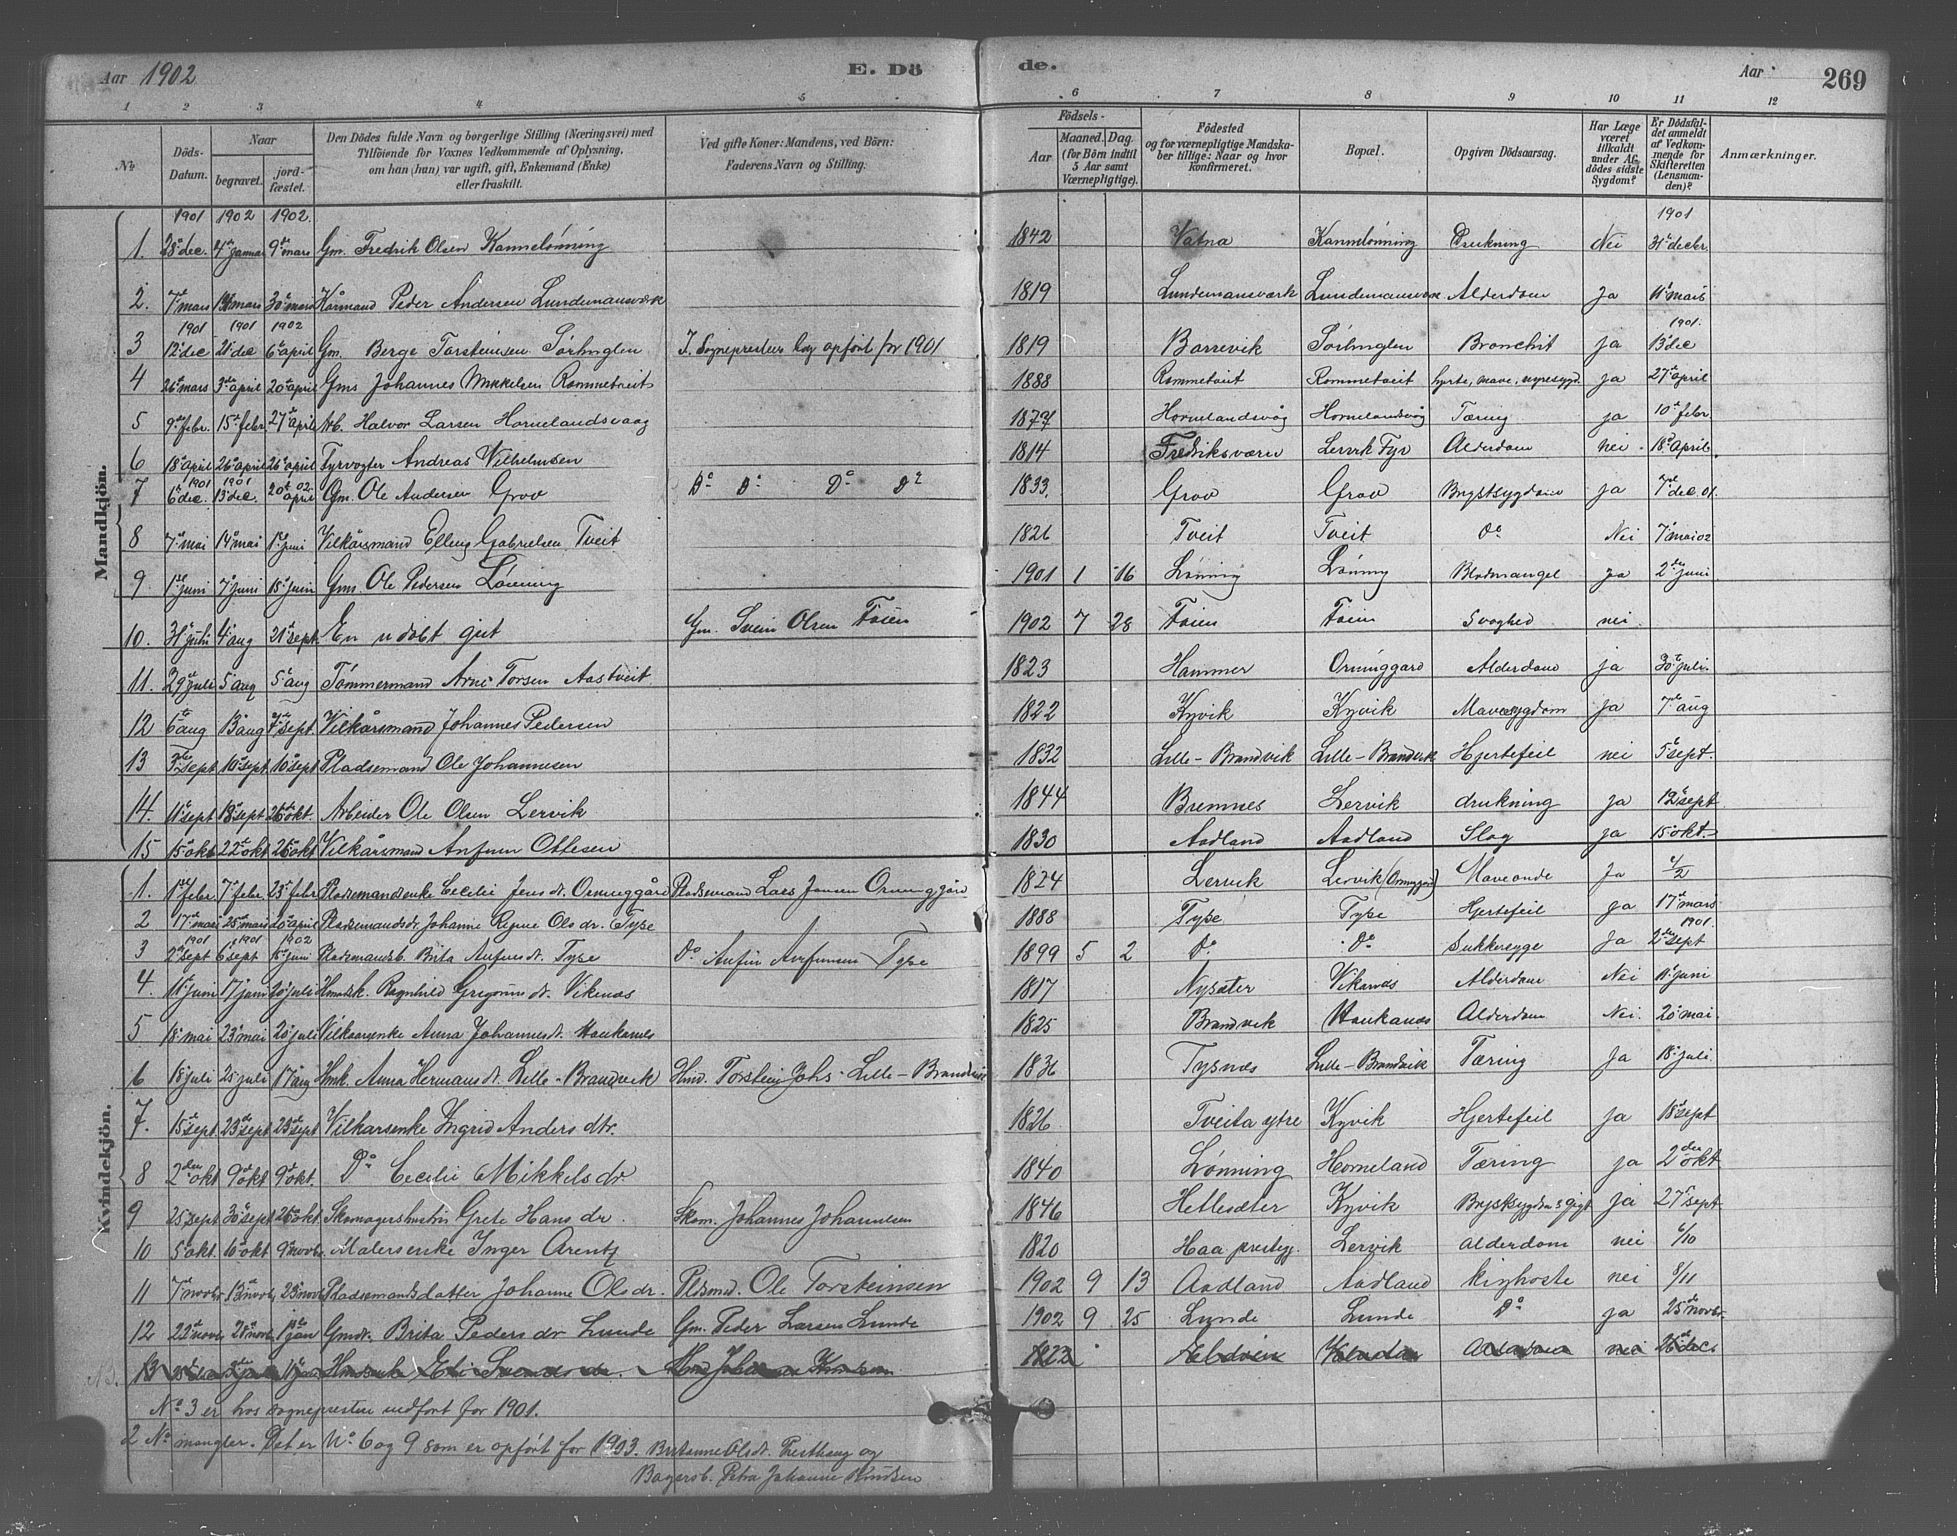 Aar 1902
E. Dö
de.
Aar
269
1 2 3 4 5 6 7 8 9 10 11 12
No
Döds-Datum.
Naar
begravet.
jord-fæstet.
Den Dödes fulde Navn og borgerlige Stilling (Næringsvei) med Tilföiende for Voxnes Vedkommende af Oplysning, om han (hun) var ugift, gift, Enkemand (Enke) eller fraskilt.
Ved gifte Koner: Mandens, ved Börn: Faderens Navn og Stilling.
Födsels-
Aar
Maaned.
Dag.
(for Börn indtil 5 Aar samt Værnepligtige).
Födested og for værnepligtige Mandskaber tillige: Naar og hvor konfirmeret.
Bopæl.
Opgiven Dödsaarsag.
Har Læge været tilkaldt under Afdödes sidste Sygdom?
Er Dödsfaldet anmeldt af Vedkommende for Skifteretten (Lensmanden)?
Anmærkninger.
Mandkjön.
1901 1902 1902. 1901
1. 28 dec. 4 januar 9 mars Gm. Fredrik Olsen Kannelönning 1842 Vatna Kannelönning Drukning Nei 31 decbr.
2. 7 mars mars 30 mars Kårmand Peder Andersen Lundemansværk 1819 Lundemansværk Lundemansværk Alderdom Ja 11 mars
1901 1901 1902 1901.
3 12 dec 21 dec 6 april Gm. Berge Torsteinsen Sörhuglen I Sogneprestens bog opfört for 1901 1819 Borrevik Sörhuglen Bronchit ja 13 dec
4 26 mars 3 april 20 april Gms Johannes Mikkelsen Rommetveit 1888 Rommetveit Rommetveit hjerte, mave, nyresygd. ja 27 april
5 9 febr. 15 febr. 27 april Arb. Halvor Larsen Hornelandsvaag 1877 Hornelandsvåg Hornelandsvåg Tæring ja 10 febr
6 18 april 26 april 26 april Fyrvogter Andreas Vilhelmsen 1814 Fredriksværn Lervik Fyr Alderdom nei 18 april.
1901 1901 02
7 6 dec. 13 dec. 20 april Gm. Ole Andersen Grov Do Do Do Do 1833. Grov Grov Brystsygdom ja 7 dec. 01.
8 7 mai 14 mai 1 juni Vilkårsmand Elling Gabrielsen Tveit 1826 Tveit Tveit Do Nei 7 mai 02
9 1 juni 7 juni 15 juni Gms. Ole Pedersen Lönning 1901 1 16 Lönning Lönning Blodmangel ja 2 juni
10. 31 juli 4 aug 21 sept. En udöbt gut Gm. Svein Olsen Föien 1902 7 28 Föien Föien Svaghed nei
11. 29 juli 5 aug 5 aug Tömmermand Arne Torsen Aastveit 1823 Hammer Orninggard Alderdom ja 30 juli.
12 6 aug 13 aug 7 sept. Vilkårsmand Johannes Pedersen 1822 Kyvik Kyvik Mavesygdom ja 7 aug
13 3 sept 10 sept 10 sept Pladsemand Ole Johannesen 1832 Lille-Brandvik Lille-Brandvik Hjertefeil nei 5 sept.
14. 11 sept 18 sept 26 okt. Arbeider Ole Olsen Lervik 1844 Bremnes Lervik drukning ja 12 sept
15 15 okt 22 okt 26 okt Vilkårsmand Anfinn Ottesen 1830 Aadland Aadland Slag ja 15 okt.
Kvindekjön.
1. 1 febr 7 febr. 23 febr Pladsemandsenke Cecilie Jens dt. Orninggård Pladsemand Lars Jansen Orninggård 1824 Lervik Lervik (Orninggård) Maveonde Ja 4/2
2 17 mars 25 mars 20 april Pladsemandsdt. Johanne Regine Ols dr. Tyse 1888 Tyse Tyse Hjertefeil ja 17 mars
1901 1901 1902 1901.
3 2 sept 6 sept juni Pladsemandsb. Brita Anfinns dt. Tyse Do Anfin Anfinnsen Tyse 1899 5 2 Do Do Sukkersyge Ja 2 sept
4. 11 juni 17 juni 20 juli Hmdsk. Ragnhild Gregorius dt. Vikenas 1817 Nysæter Vikanes Alderdom Nei 11 juni
5 18 mai 23 mai 20 juli Vilkaarsenke Anna Johannesdt. Haukanes 1825 Brandvik Haukanes Alderdom Nei. 20 mai
6 18 juli 25 juli 17 aug Hmk. Anna Hermans dt. Lille-Brandvik Hmd. Torstein Johs. Lille-Brandvik 1836 Tysnes Lille-Brandvik Tæring Ja 18 juli.
7. 15 sept 23 sept 23 sept Vilkarsenke Ingrid Anders dtr. 1826 Tveita ytre Kyvik Hjertefeil ja 18 sept
8 2 okt 9 okt 9 okt. Do Cecilie Mikkels dr 1840 Lönning Horneland Tæring ja 2 okt
9 25 sept 30 sept 26 okt. Skomagerhustru Grete Hans dr. Skom. Johannes Johannesen 1846 Hetlesæter Kyvik Brystsygdom & gigt ja 27 sept.
10 5 okt. 10 okt 9 novbr. Malersenke Inger Arentz 1820 Haa prestgj. Lervik alderdom nei 6/10
11 7 novbr. 13 novb. 23 novb. Pladsemandsdatter Johanne Ols dr. Pldsmd. Ole Torsteinsen 1902 9 13 Aadland Aadland kighoste nei 8/11
12 22 novb. 28 novb. 1 jan Gmdt. Brita Peders dr Lunde Gm. Peder Larsen Lunde 1902 9 25 Lunde Lunde Do ja 25 novbr.
13
No 3 er hos sogneprestene indfört for 1901.
2 No mangler. Det er No 6 og 9 som er opfört for 1903. Olsdt. Presthaug og
Bagersb. Petra Johanne Knudsen